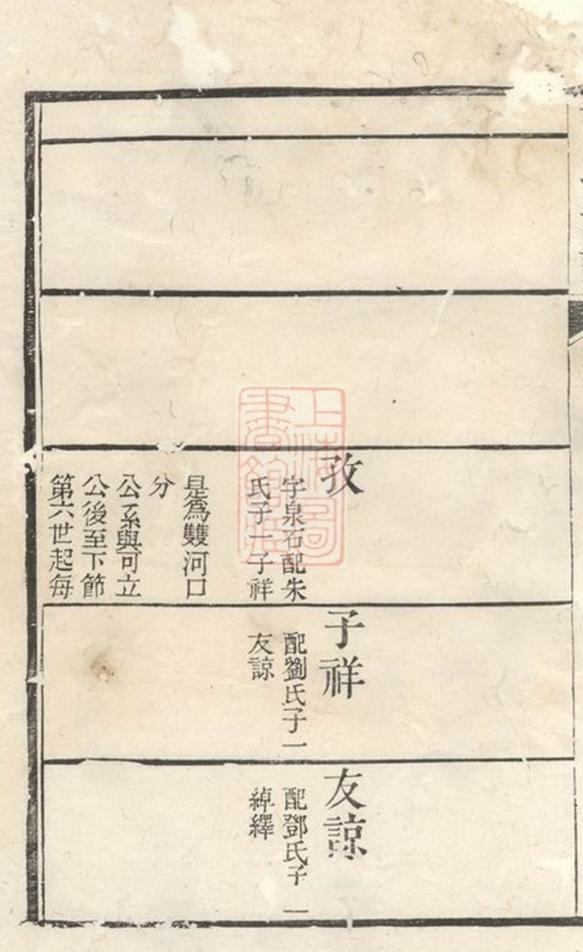 上海圖
書館藏
孜
字泉石配朱
氏子一子祥
是為雙河口
分
公系與可立
公後至下節
第六世起每
子祥
配劉氏子一
友諒
友諒
配鄧氏子一
綽繹